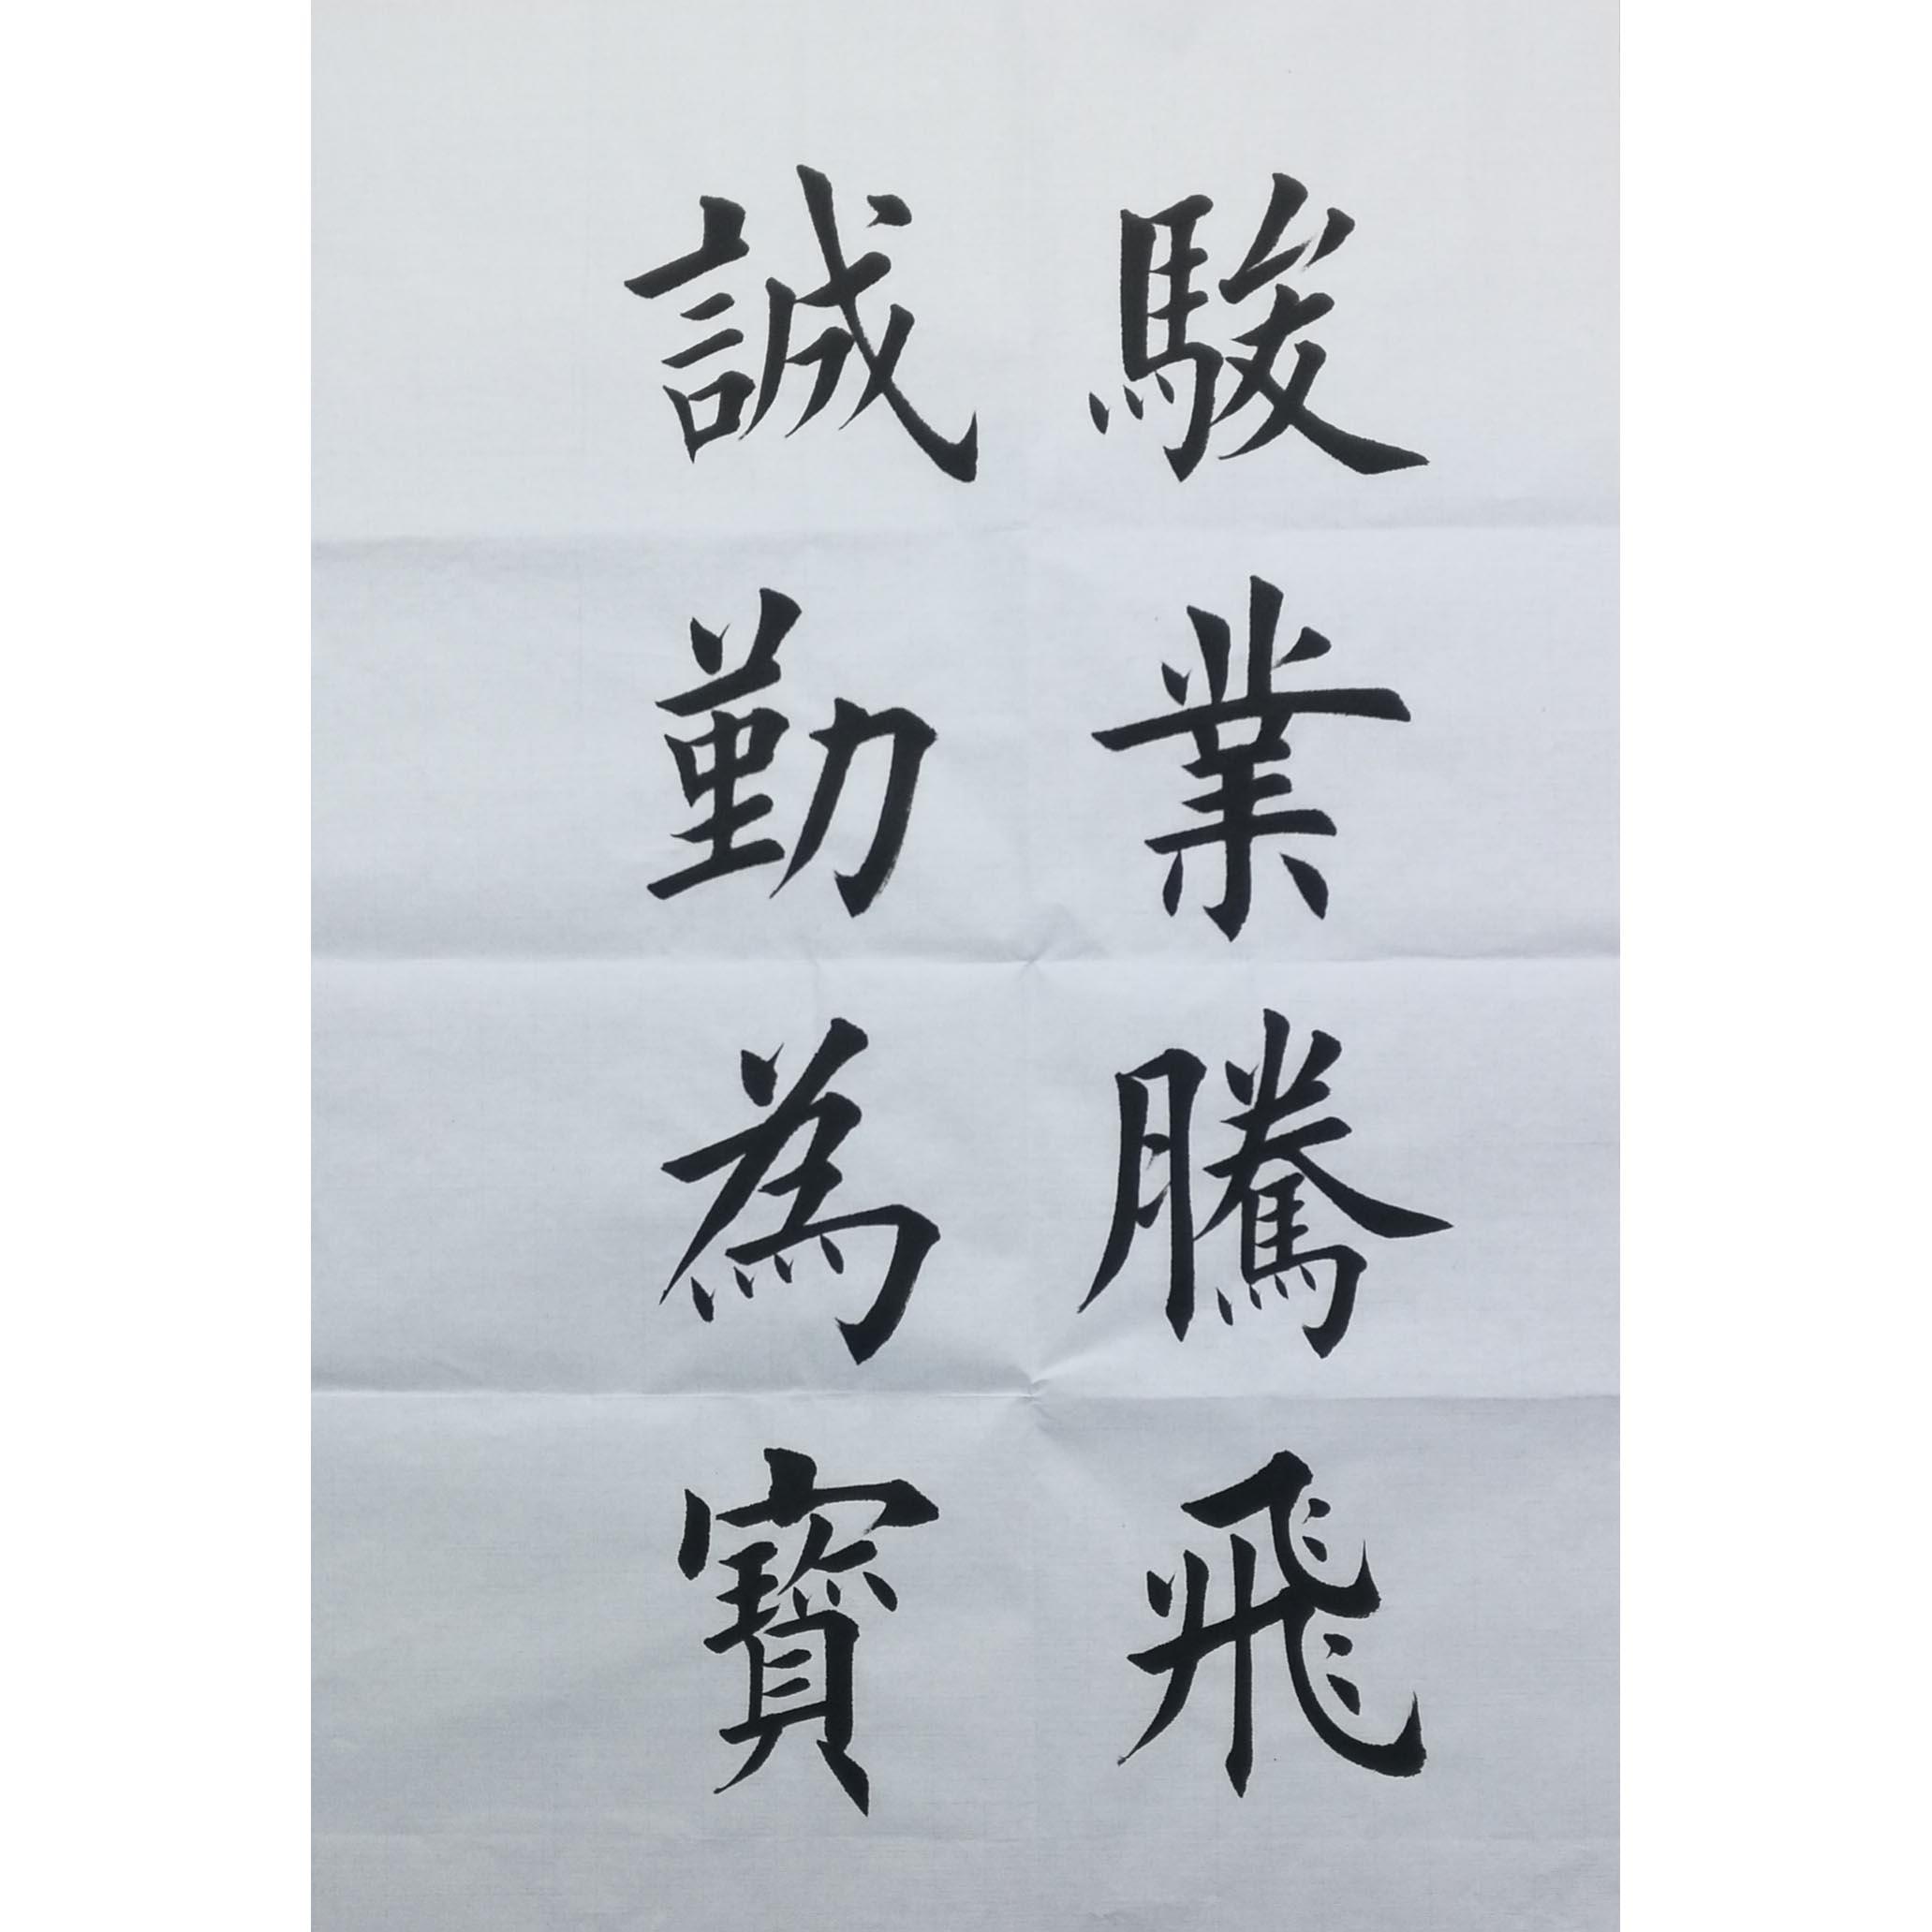 駿業騰飛
誠勤為寳